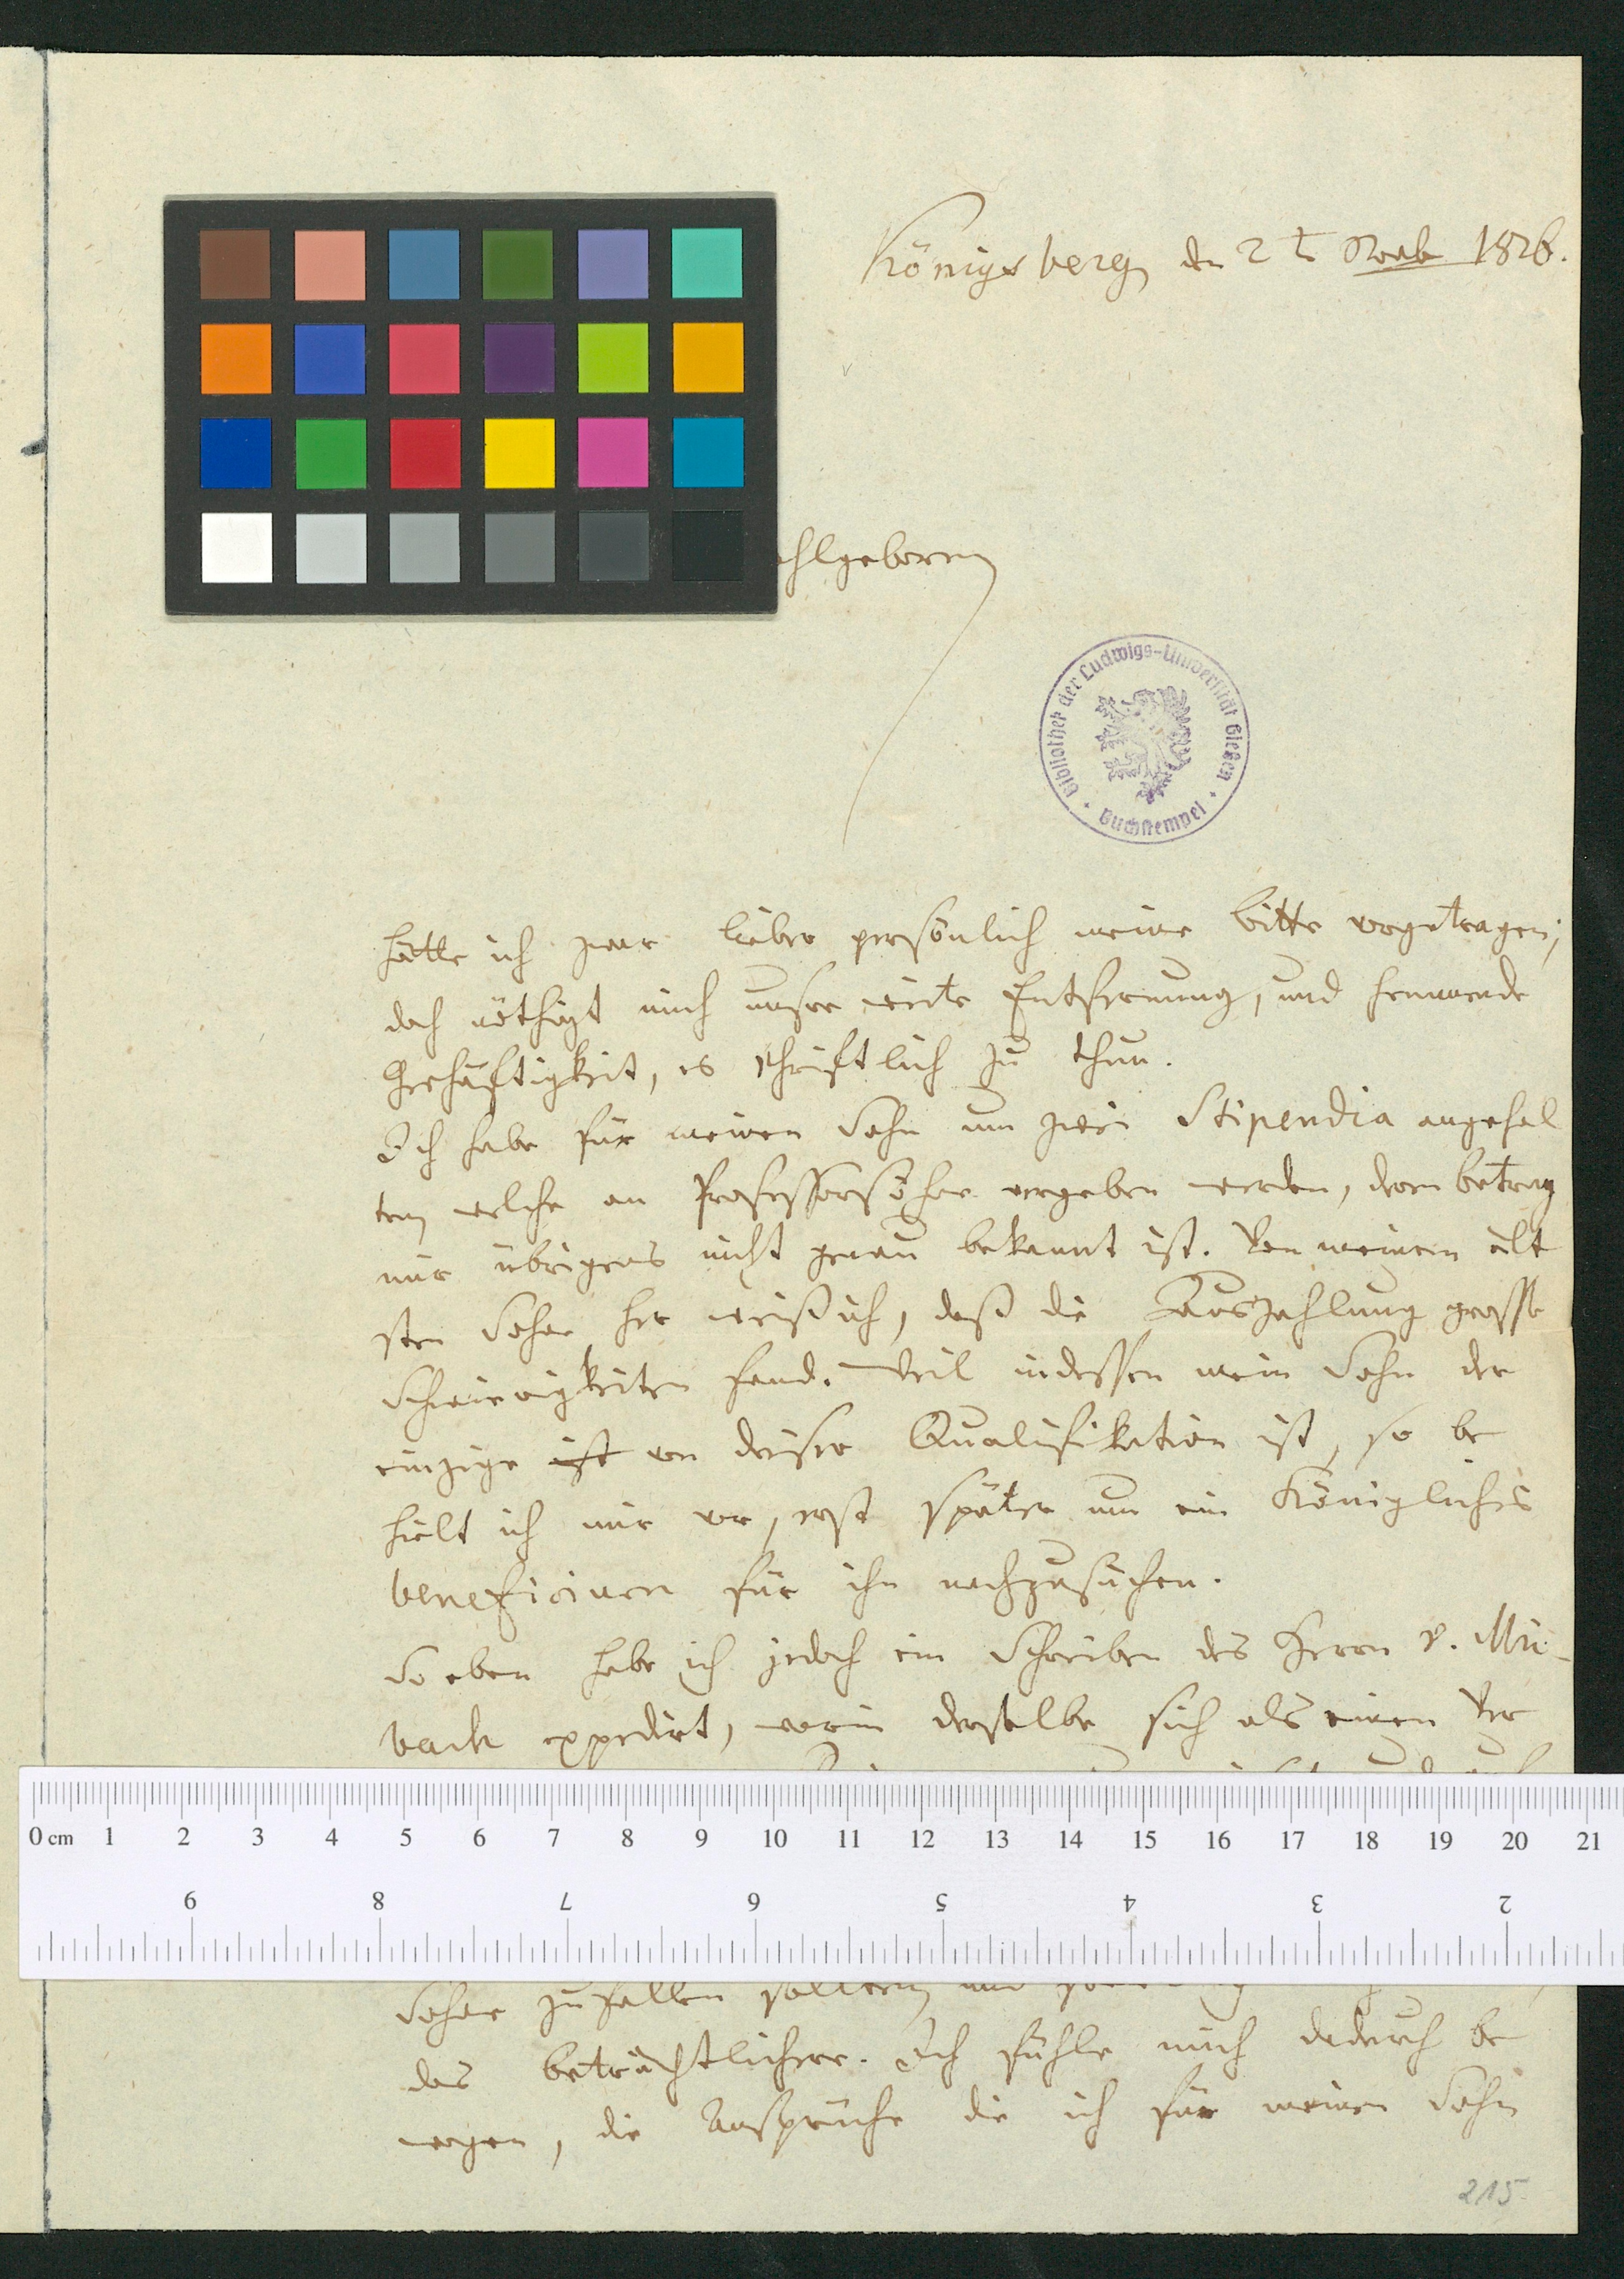 Königsberg den 2 t Novb 1826.
ohlgeboren
Bibliothek der Ludwigs-Universität Gießen
Buchstempel
hätte ich zwar lieber persönlich meine bitte vorgetragen;
doch nöthigt mich unsre weite Entfernung, und
Geschäftigkeit, es schriftlich zu thun.
Ich habe für meinen Sohn um zwei Stipendia angehal
ten welche an Professorsöhne vergeben werden, deren betrag
mir übrigens nicht genau bekannt ist. Von meinem ält
sten Sohne her weiß ich, daß die Auszahlung grosse
Schwierigkeiten fand. Weil indessen mein Sohn der
einzige ist von dieser Qualifikation ist, so be
hielt ich mir vor, erst später um ein Königliches
beneficium für ihn nachzusuchen.
So eben habe ich jedoch ein Schreiben des Herrn v. Mü-
bach expedirt, worin derselbe sich als einen Ver
0 cm 1 2 3 4 5 6 7 8 9 10 11 12 13 14 15 16 17 18 19 20 21
9 8 7 6 5 4 3 2
Sohne zufallen sollten und
das beträchtlichere. Ich fühle mich dadurch be
wogen, die Ansprüche die ich für meinen Sohn
215